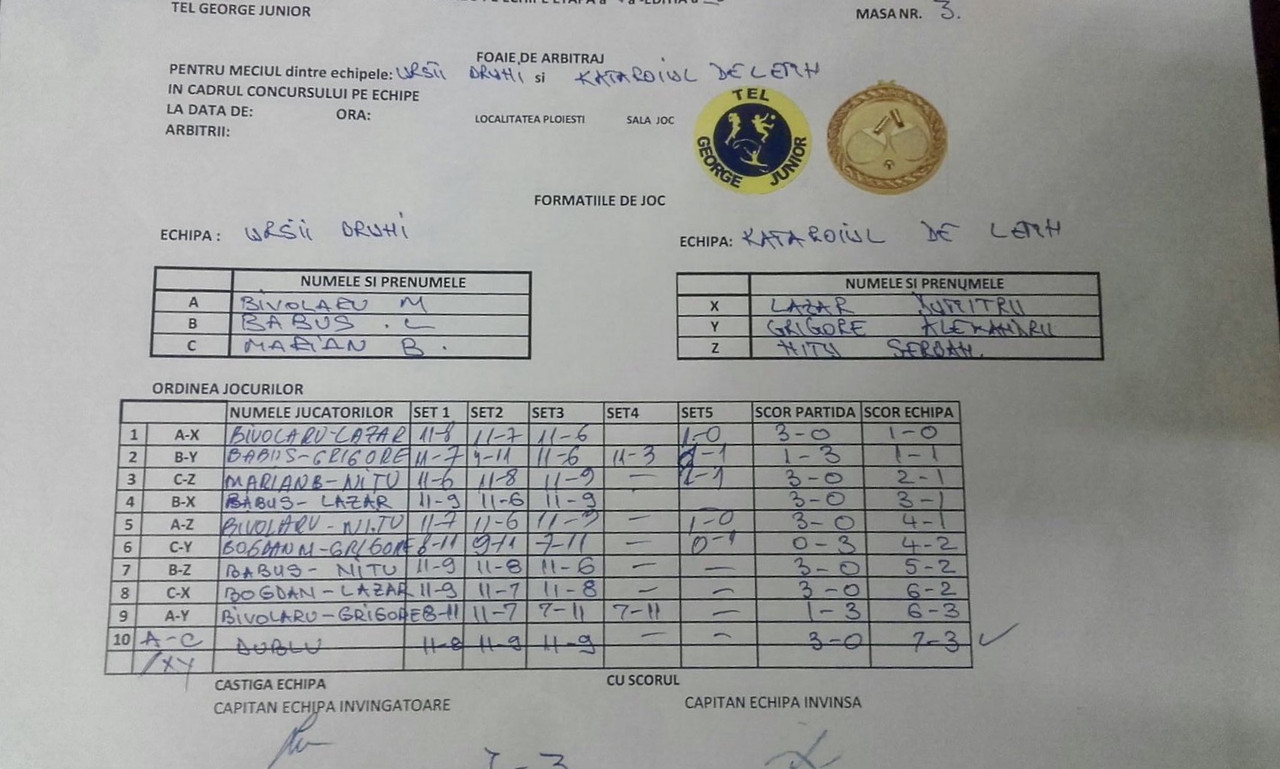 TEL GEORGE JUNIOR
MASA NR. 3.
FOAIE DE ARBITRAJ
PENTRU MECIUL dintre echipele: URSII DRUHI si KATAROIUL DE LEMH
IN CADRUL CONCURSULUI PE ECHIPE
LA DATA DE: ORA: LOCALITATEA PLOIESTI SALA JOC
ARBITRII:
TEL
GEORGE JUNIOR
FORMATIILE DE JOC
ECHIPA : URSII DRUHI ECHIPA: KATAROIUL DE LEMH
NUMELE SI PRENUMELE NUMELE SI PRENUMELE
A BIVOLARU M X LAZAR DUMITRU
B BABUS . L Y GRIGORE ALEXANDRU
C MARIAN B . Z NITU SERBAN
ORDINEA JOCURILOR
NUMELE JUCATORILOR SET 1 SET2 SET3 SET4 SET5 SCOR PARTIDA SCOR ECHIPA
1 A-X BIVOLARU-LAZAR 11-8 11-7 11-6 1-0 3-0 1-0
2 B-Y BABUS-GRIGORE 11-7 4-11 11-6 11-3 1-3 1-1
3 C-Z MARIANB-NITU 11-6 11-8 11-9 — 3-0 2-1
4 B-X BABUS- LAZAR 11-9 11-6 11-9 3-0 3-1
5 A-Z BIVOLARU-NITU 11-7 11-6 — 1-0 3-0 4-1
6 C-Y BOGDAN M-GRIGORE 8-11 9-11 7-11 — 0-1 0-3 4-2
7 B-Z BABUS- NITU 11-9 11-8 11-6 — — 3-0 5-2
8 C-X BOGDAN-LAZAR 11-9 11-7 11-8 — — 3-0 6-2
9 A-Y BIVOLARU-GRIGORE 8-11 11-7 7-11 7-11 — 1-3 6-3
10 A-C DUBLU 11-8 11-9 11-9 — — 3-0 7-3
/XY
CASTIGA ECHIPA CU SCORUL
CAPITAN ECHIPA INVINGATOARE CAPITAN ECHIPA INVINSA